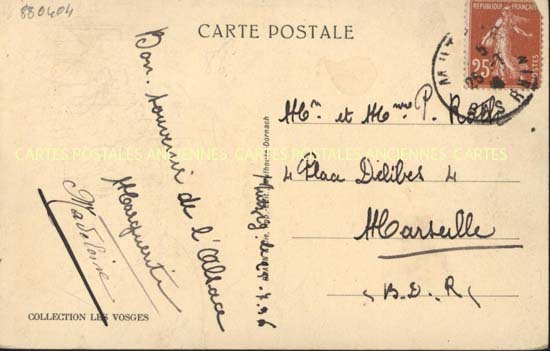 880404
CARTE POSTALE
RÉPUBLIQUE FRANÇAISE
25
Bon souvenir de l'Alsace
Marguerite
Madeleine
Mʳ et Mᵐᵉ P. Roth
4 Place Delibes 4
Marseille
(B.D.R)
COLLECTION LES VOSGES
CARTES POSTALES ANCIENNES CARTES POSTALES ANCIENNES CARTES